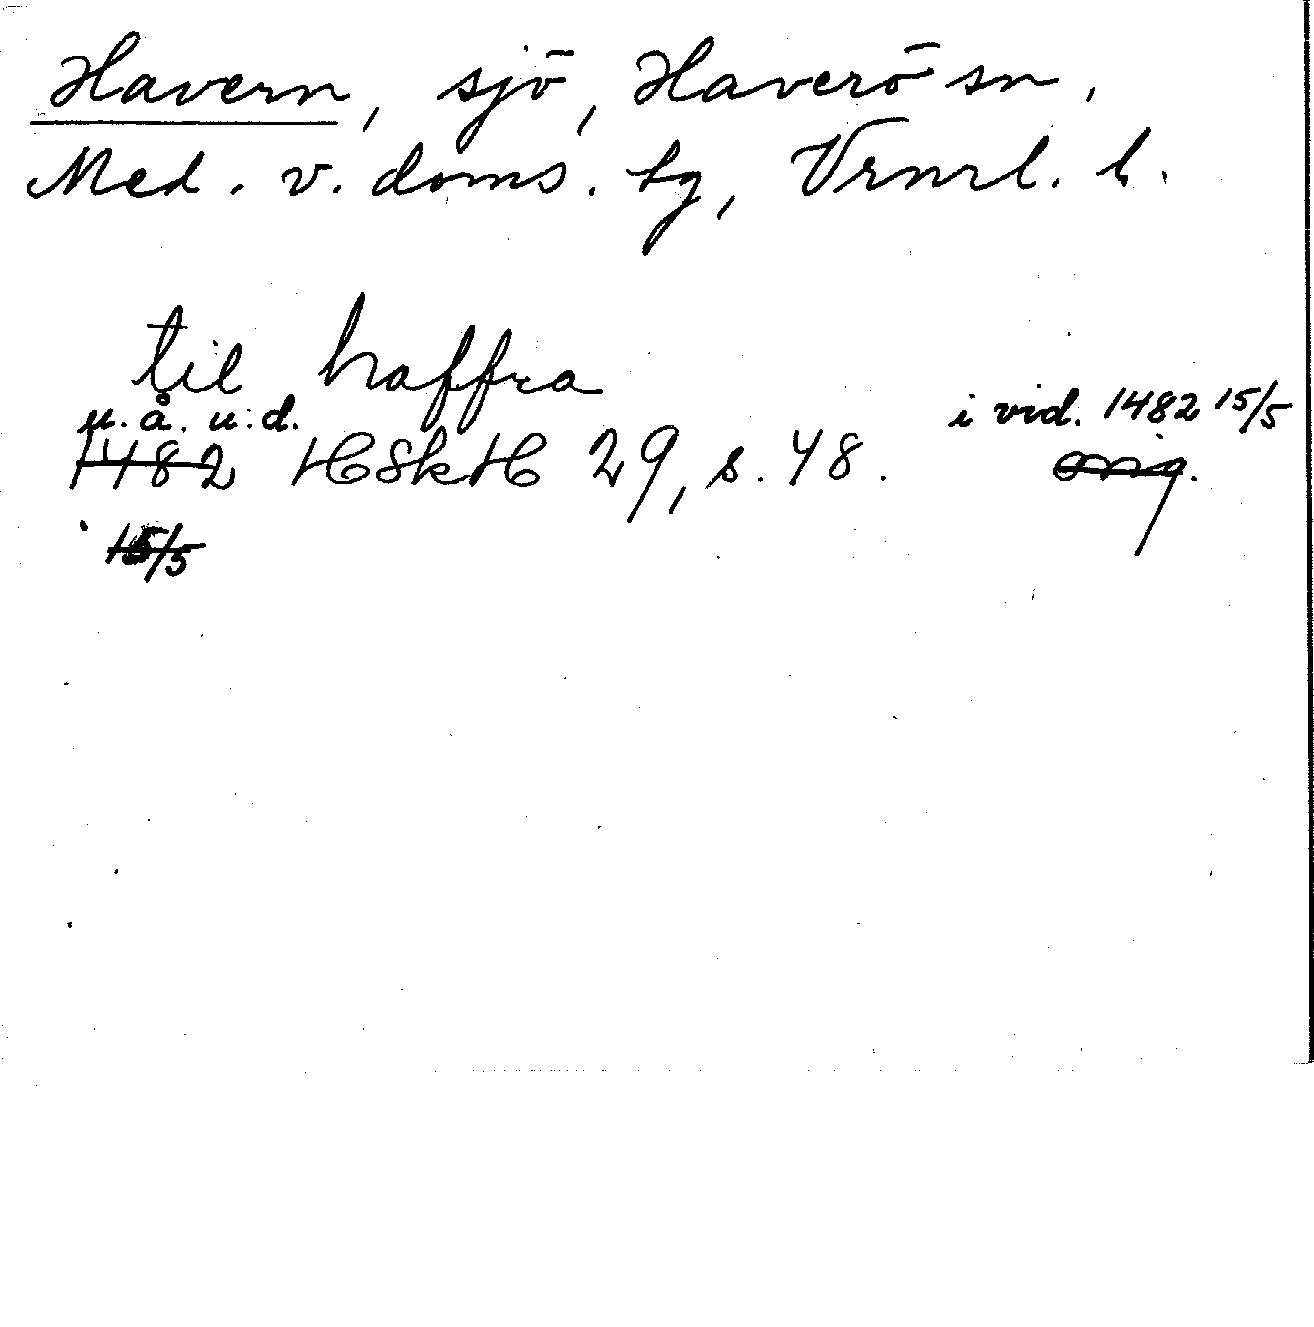 Havern, sjö, Haverö sn,
Med. v. doms. tg, Vrnrl. l.
til haffra
u. å. u. d. i vid. 1482 15/5
1482 HSkH 29, s. 48. orig.
15/5